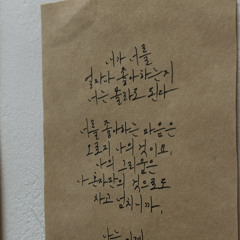 내가 너를
얼마나 좋아하는지
너는 몰라도 된다
너를 좋아하는 마음은
오로지 나의 것이요,
나의 그리움은
나 혼자만의 것으로도
차고 넘치니까,
나는 이제